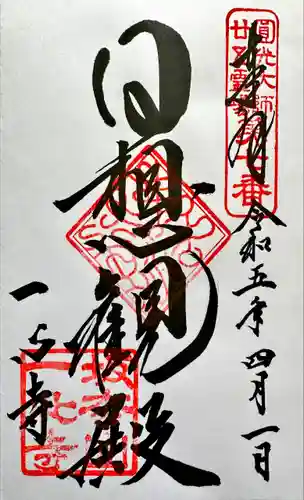 圓光大師
廿五霊場
第七番
奉拝
令和五年四月一日
日想観殿
一心寺